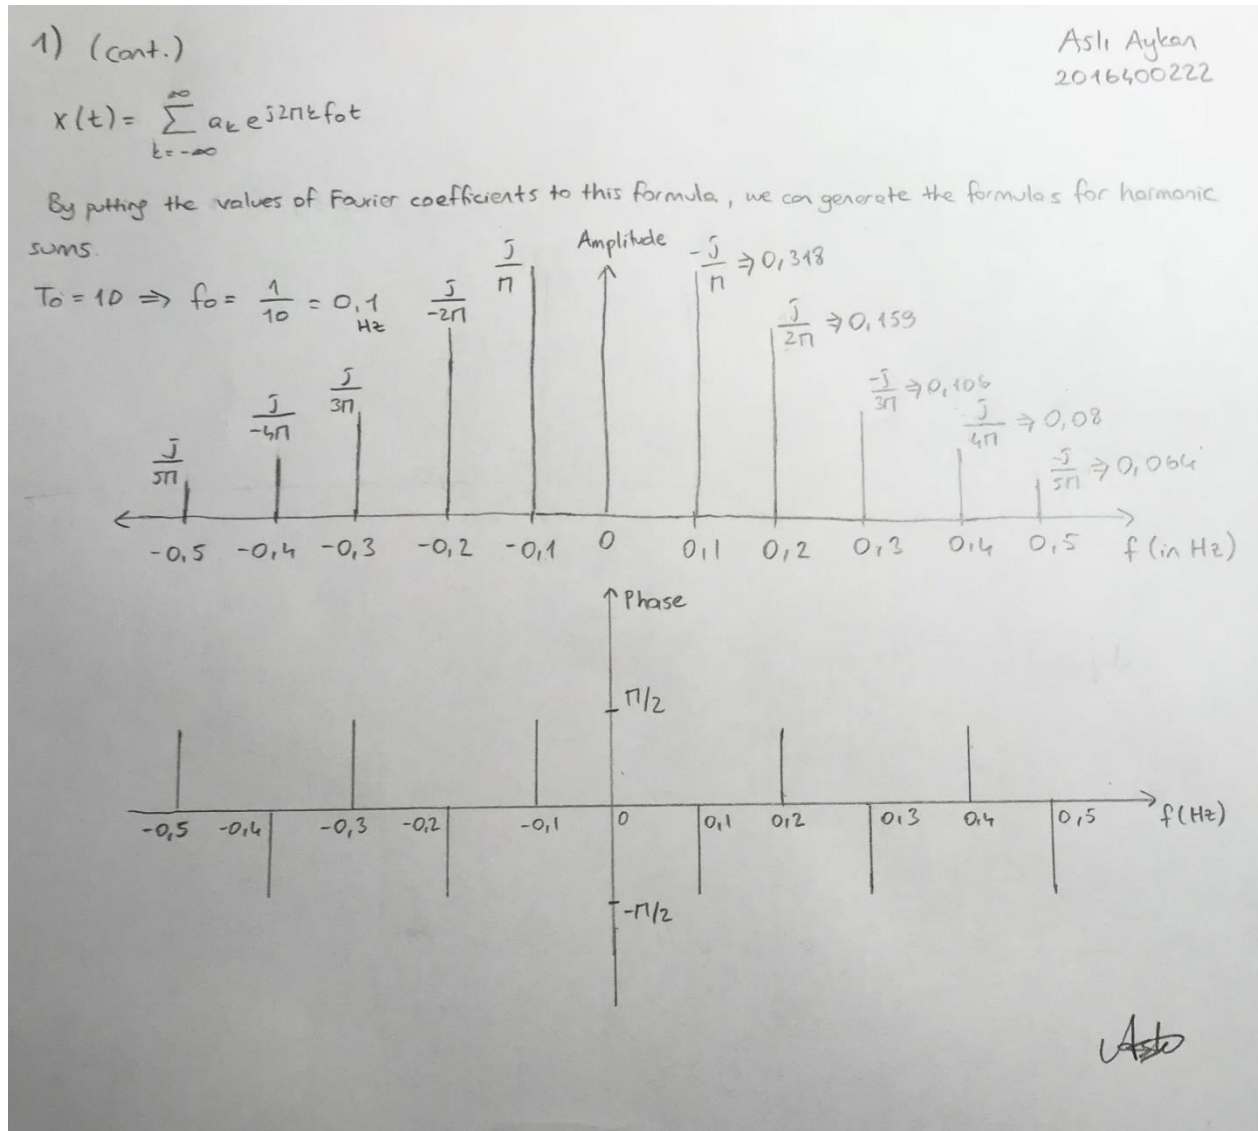 1) (cont.)
Aslı Aykan
2016400222
x(t) = ∞∑k=-∞ a_k e^{j2πkf₀t}
By putting the values of Fourier coefficients to this formula, we can generate the formulas for harmonic
sums.
T₀ = 10 ⇒ f₀ = 1/10 = 0,1 Hz
Amplitude
j/5π j/-4π j/3π j/-2π j/π
-j/π ⇒ 0,318
j/2π ⇒ 0,159
-j/3π ⇒ 0,106
j/4π ⇒ 0,08
-j/5π ⇒ 0,064
-0,5 -0,4 -0,3 -0,2 -0,1 0 0,1 0,2 0,3 0,4 0,5 f (in Hz)
Phase
π/2
-0,5 -0,4 -0,3 -0,2 -0,1 0 0,1 0,2 0,3 0,4 0,5 f(Hz)
-π/2